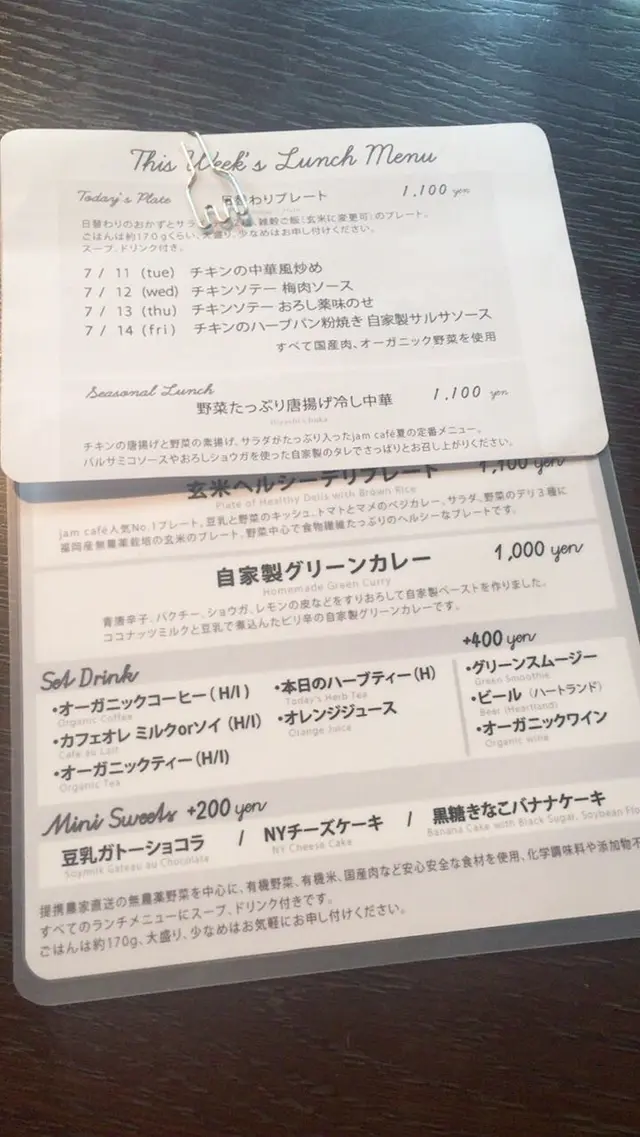 This Week's Lunch Menu
Today's Plate わりプレート 1,100 yen
日替わりのおかずとサラ 雑穀ご飯(玄米に変更可)のプレート。
ごはんは約170gくらい、大盛り、少なめはお申し付けください。
スープ、ドリンク付き。
7 / 11 (tue) チキンの中華風炒め
7 / 12 (wed) チキンソテー 梅肉ソース
7 / 13 (thu) チキンソテー おろし薬味のせ
7 / 14 (fri) チキンのハーブパン粉焼き 自家製サルサソース
すべて国産肉、オーガニック野菜を使用
Seasonal Lunch 野菜たっぷり唐揚げ冷し中華 1,100 yen
チキンの唐揚げと野菜の素揚げ、サラダがたっぷり入ったjam café夏の定番メニュー。
バルサミコソースやおろしショウガを使った自家製のタレでさっぱりとお召し上がりください。
玄米ヘルシーデリプレート 1,100 yen
Plate of Healthy Delis with Brown Rice
jam café人気No.1プレート。豆乳と野菜のキッシュ、トマトとマメのベジカレー、サラダ、野菜のデリ3種に
福岡産無農薬栽培の玄米のプレート。野菜中心で食物繊維たっぷりのヘルシーなプレートです。
自家製グリーンカレー 1,000 yen
Homemade Green Curry
青唐辛子、パクチー、ショウガ、レモンの皮などをすりおろして自家製ペーストを作りました。
ココナッツミルクと豆乳で煮込んだピリ辛の自家製グリーンカレーです。
Set Drink
・オーガニックコーヒー(H/I)
Organic Coffee
・カフェオレ ミルクorソイ(H/I)
Cafe au Lait
・オーガニックティー(H/I)
Organic Tea
・本日のハーブティー(H)
Today's Herb Tea
・オレンジジュース
Orange Juice
+400 yen
・グリーンスムージー
Green Smoothie
・ビール (ハートランド)
Beer (Heartland)
・オーガニックワイン
Organic Wine
Mini Sweets +200 yen
豆乳ガトーショコラ / NYチーズケーキ / 黒糖きなこバナナケーキ
Soymilk Gateau au Chocolate NY Cheese Cake Banana Cake with Black Sugar, Soybean Flo
提携農家直送の無農薬野菜を中心に、有機野菜、有機米、国産肉など安心安全な食材を使用、化学調味料や添加物不
すべてのランチメニューにスープ、ドリンク付きです。
ごはんは約170g、大盛り、少なめはお気軽にお申し付けください。